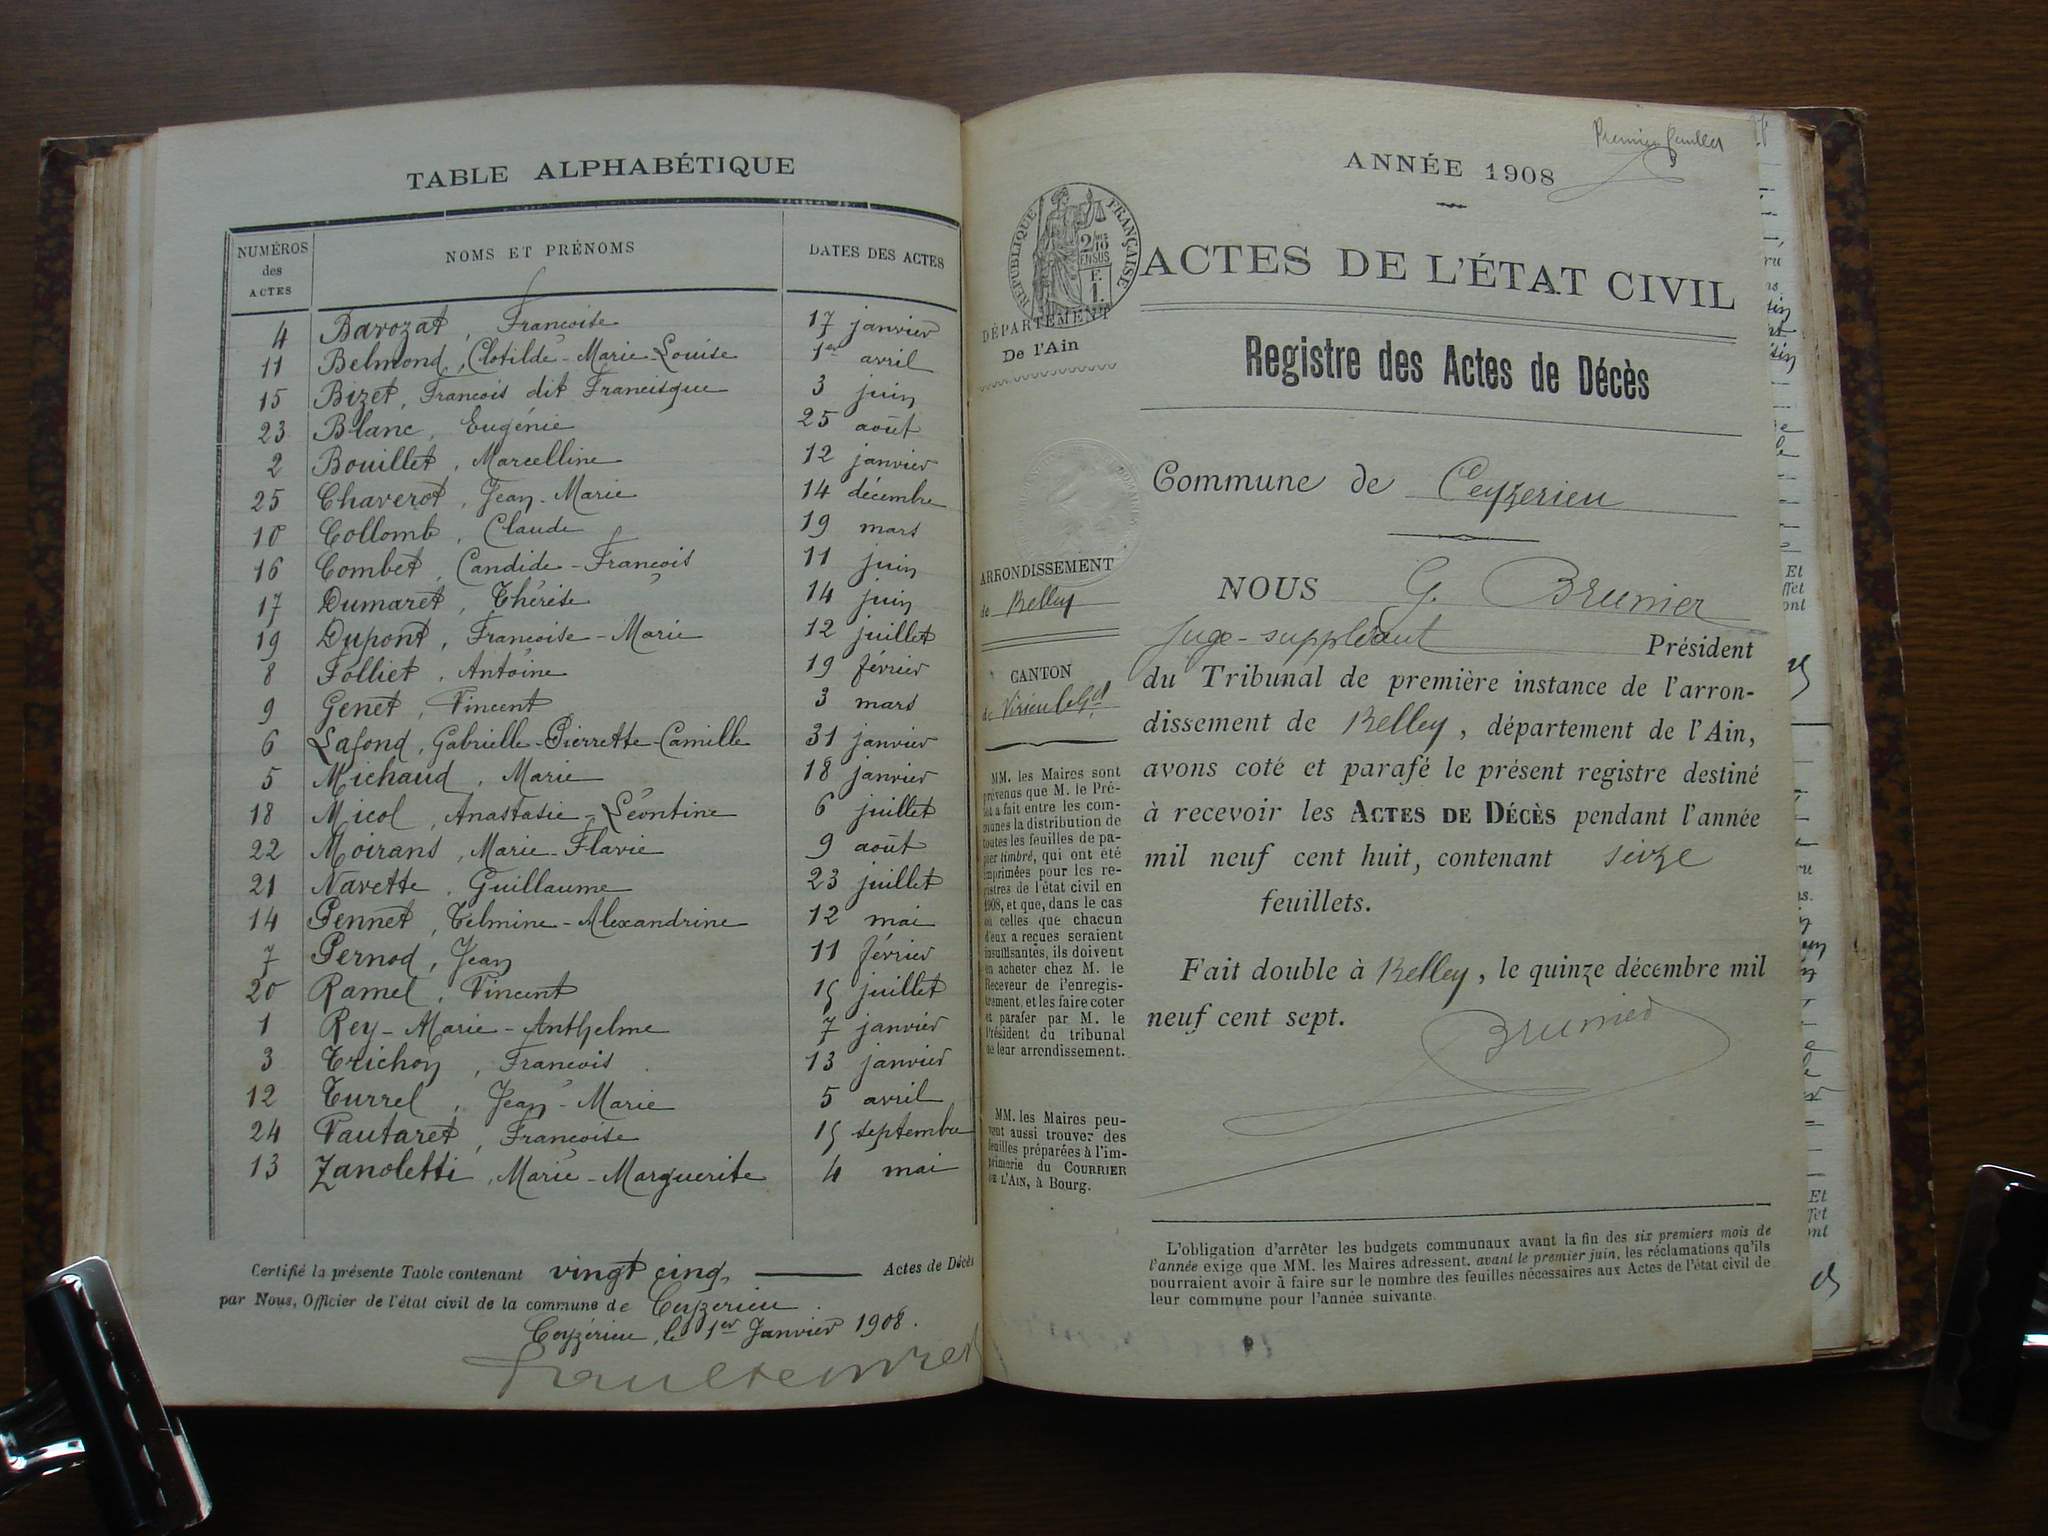 TABLE ALPHABÉTIQUE
NUMÉROS des ACTES NOMS ET PRÉNOMS DATES DES ACTES
4 Barozat, Françoise 17 janvier
11 Belmond, Clotilde-Marie-Louise 1er avril
15 Bizet, François dit Francisque 3 juin
23 Blanc, Eugénie 25 août
2 Bouillet, Marcelline 12 janvier
25 Chaverot, Jean-Marie 14 décembre
10 Collomb, Claude 19 mars
16 Combet, Candide-François 11 juin
17 Dumaret, Thérèse 14 juin
19 Dupont, Françoise-Marie 12 juillet
8 Folliet, Antoine 19 février
9 Genet, Vincent 3 mars
6 Lafond, Gabrielle-Pierrette-Camille 31 janvier
5 Michaud, Marie 18 janvier
18 Micol, Anastasie-Léontine 6 juillet
22 Moirans, Marie-Flavie 9 août
21 Navette, Guillaume 23 juillet
14 Pennet, Telmine-Alexandrine 12 mai
7 Pernod, Jean 11 février
20 Ramel, Vincent 15 juillet
1 Rey-Marie-Anthelme 7 janvier
3 Trichon, François 13 janvier
12 Turrel, Jean-Marie 5 avril
24 Vautaret, Françoise 15 septembre
13 Zanoletti, Marie-Marguerite 4 mai
Certifié la présente Table contenant vingt cinq Actes de Décès
par Nous, Officier de l'état civil de la commune de Ceyzerieu.
Ceyzérieu, le 1er Janvier 1908.
Premier feuillet
ANNÉE 1908
RÉPUBLIQUE FRANÇAISE
2/10
EN SUS
F.
1.
ACTES DE L'ÉTAT CIVIL
DÉPARTEMENT
De l'Ain
Registre des Actes de Décès
Commune de Ceyzerieu
ARRONDISSEMENT
de Belley
CANTON
de Virieu le Gd
NOUS G. Brunier
Juge-suppléant Président
du Tribunal de première instance de l'arron-
dissement de Belley, département de l'Ain,
avons coté et parafé le présent registre destiné
à recevoir les ACTES DE DÉCÈS pendant l'année
mil neuf cent huit, contenant seize
feuillets.
Fait double à Belley, le quinze décembre mil
neuf cent sept.
Brunier
MM. les Maires sont
prévenus que M. le Pré-
fet a fait entre les com-
munes la distribution de
toutes les feuilles de pa-
pier timbré, qui ont été
imprimées pour les re-
gistres de l'état civil en
1908, et que, dans le cas
où celles que chacun
d'eux a reçues seraient
insuffisantes, ils doivent
en acheter chez M. le
Receveur de l'enregis-
trement, et les faire coter
et parafer par M. le
Président du tribunal
de leur arrondissement.
MM. les Maires peu-
vent aussi trouver des
feuilles préparées à l'im-
primerie du COURRIER
DE L'AIN, à Bourg.
L'obligation d'arrêter les budgets communaux avant la fin des six premiers mois de
l'année exige que MM. les Maires adressent, avant le premier juin, les réclamations qu'ils
pourraient avoir à faire sur le nombre des feuilles nécessaires aux Actes de l'état civil de
leur commune pour l'année suivante.